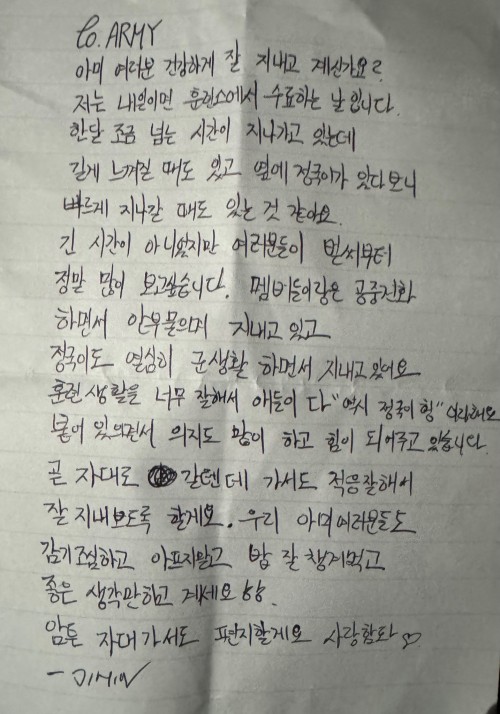 to. ARMY
아미 여러분 건강하게 잘 지내고 계신가요?
저는 내일이면 훈련소에서 수료하는 날 입니다.
한달 조금 넘는 시간이 지나가고 있는데
길게 느껴질 때도 있고 옆에 정국이가 있다보니
빠르게 지나간 때도 있는 것 같아요.
긴 시간이 아니었지만 여러분들이 벌써부터
정말 많이 보고싶습니다. 멤버들이랑은 공중전화
하면서 안부 물으며 지내고 있고
정국이도 열심히 군생활 하면서 지내고 있어요
훈련 생활을 너무 잘해서 애들이 다 "역시 정국이 형" 이래요
붙어 있으면서 의지도 많이 하고 힘이 되어주고 있습니다.
곧 자대로 갈텐데 가서도 적응잘해서
잘 지내보도록 할게요. 우리 아미여러분들도
감기조심하고 아프지말고 밥 잘 챙겨먹고
좋은 생각만하고 계세요
암튼 자대가서도 편지할게요 사랑합니다 ♡
- JIMIN